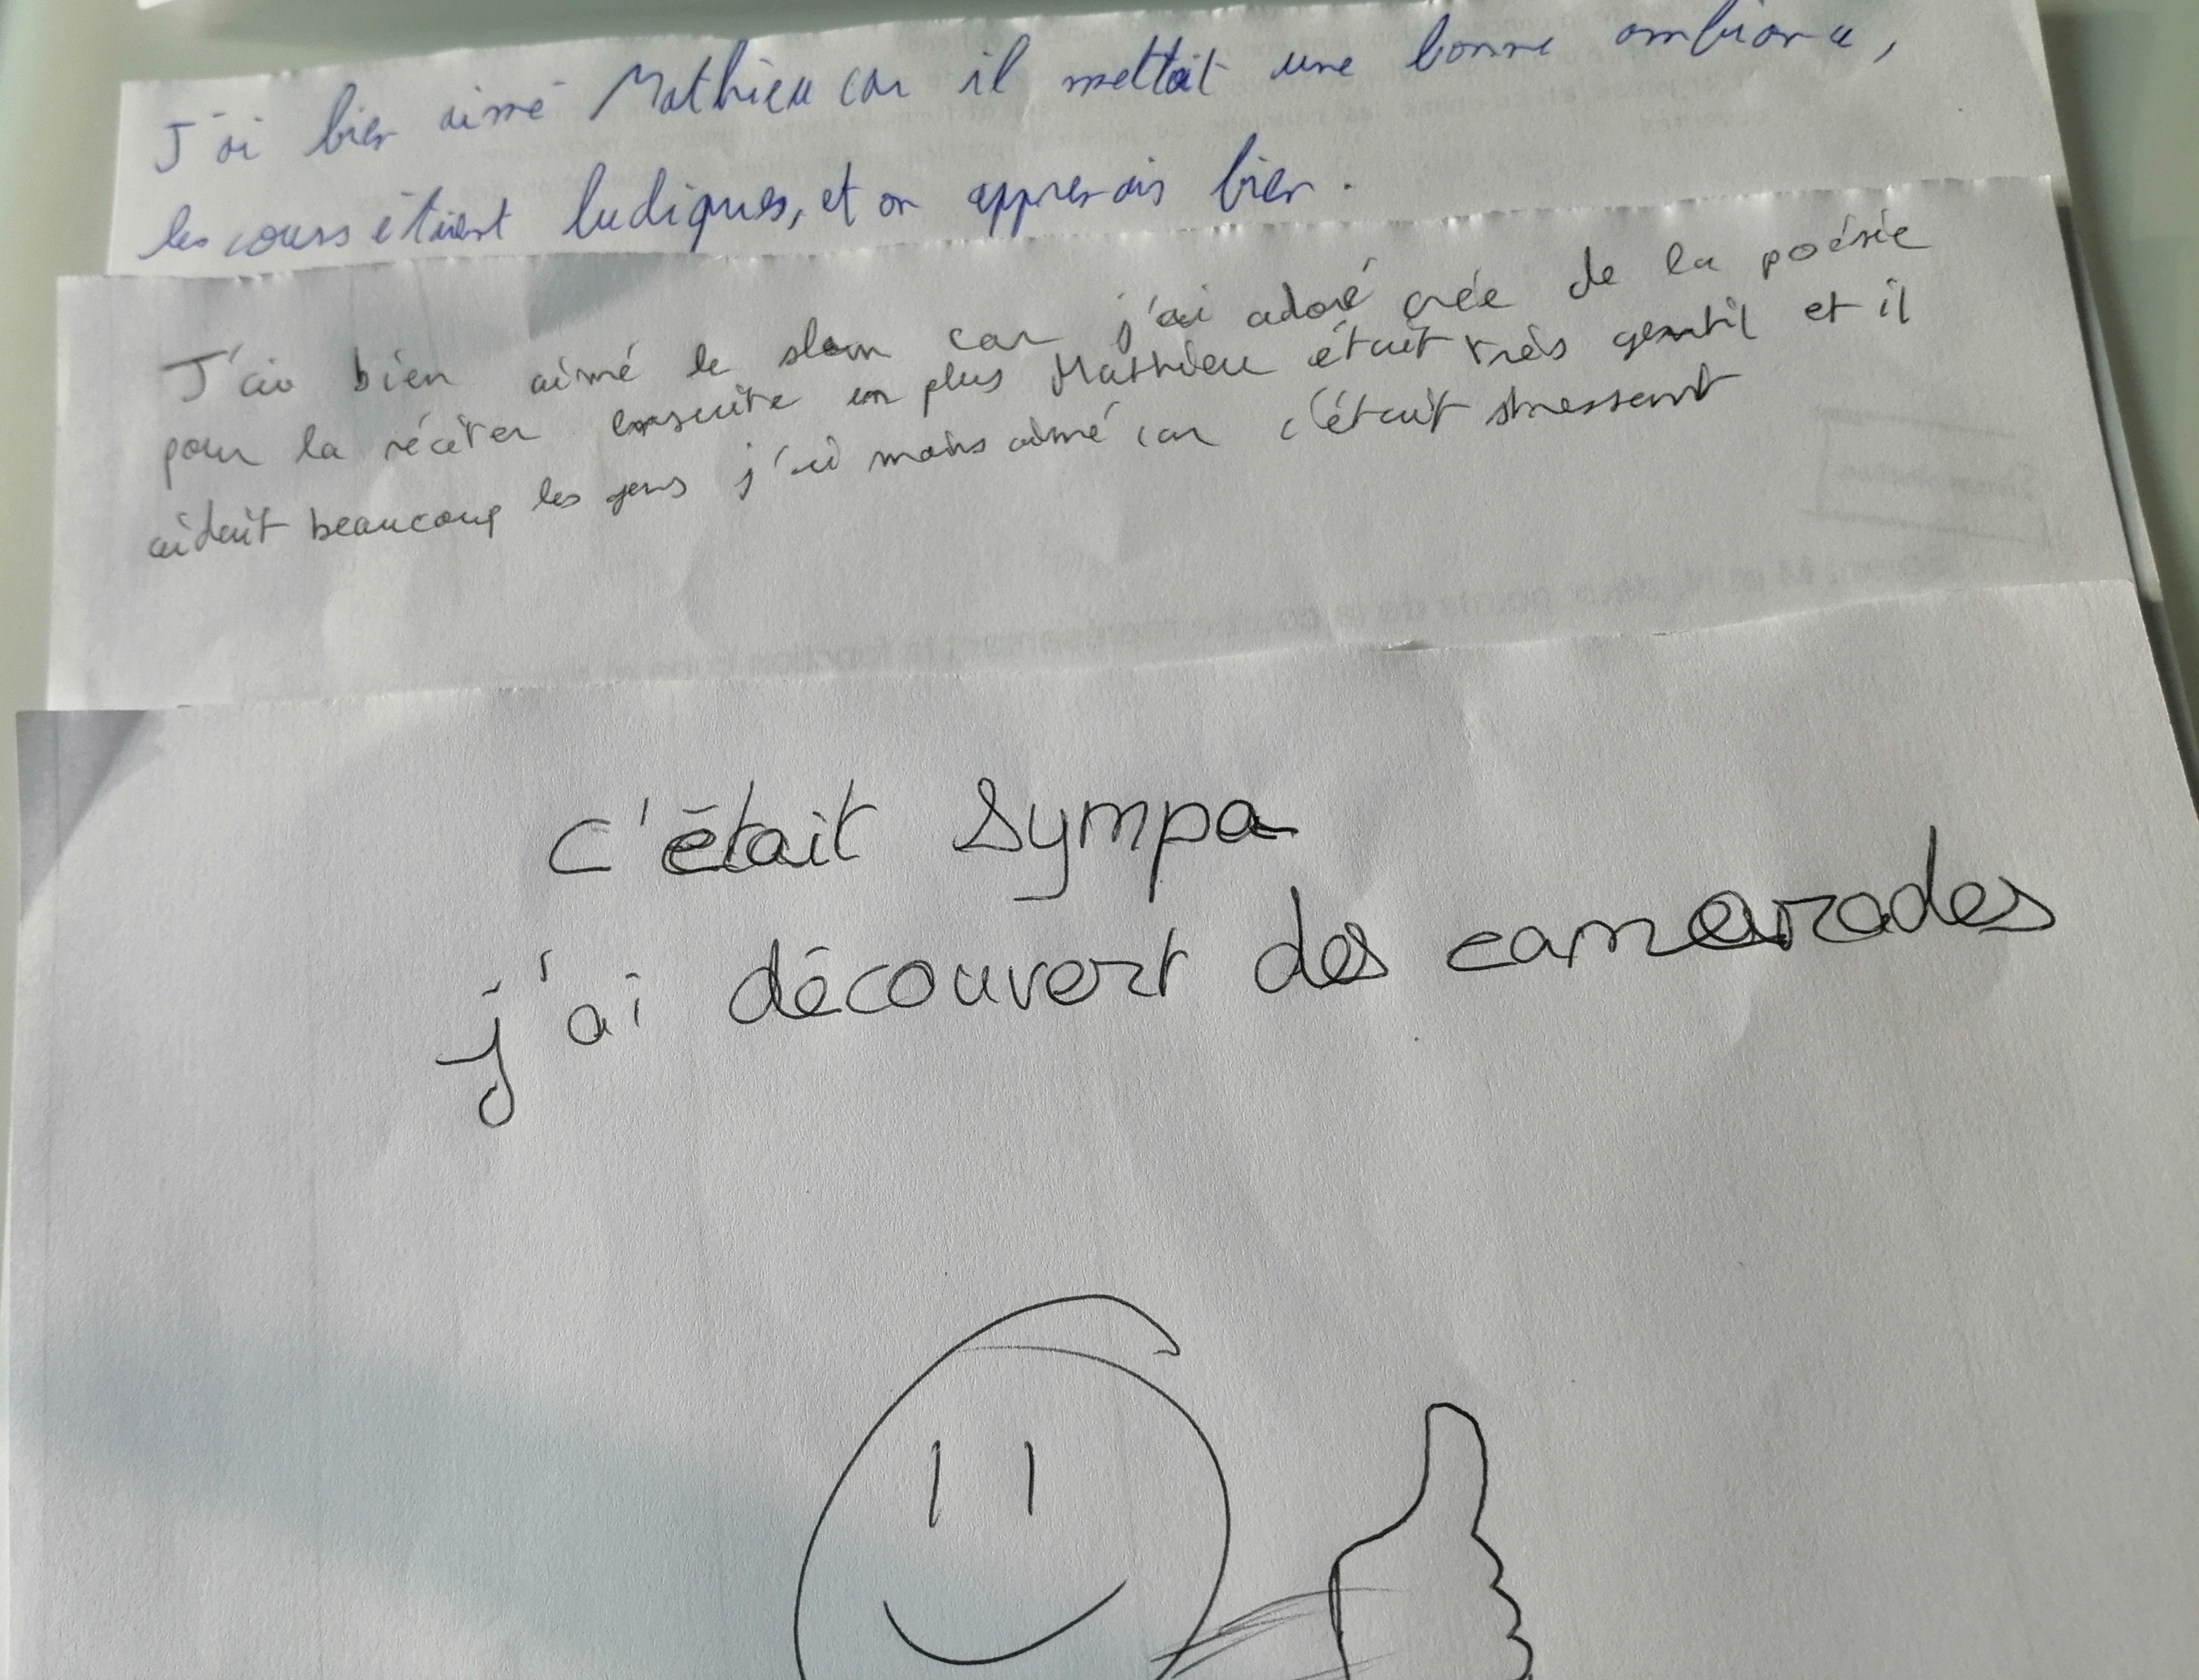 J'ai bien aimé Mathieu car il mettait une bonne ambiance,
les cours étaient ludiques, et on apprenais bien.
J'ai bien aimé le slam car j'ai adoré crée de la poésie
pour la réciter ensuite en plus Mathieu était très gentil et il
aidait beaucoup les gens j'ai moins aimé car c'était stressant
c'était sympa
j'ai découvert des camarades